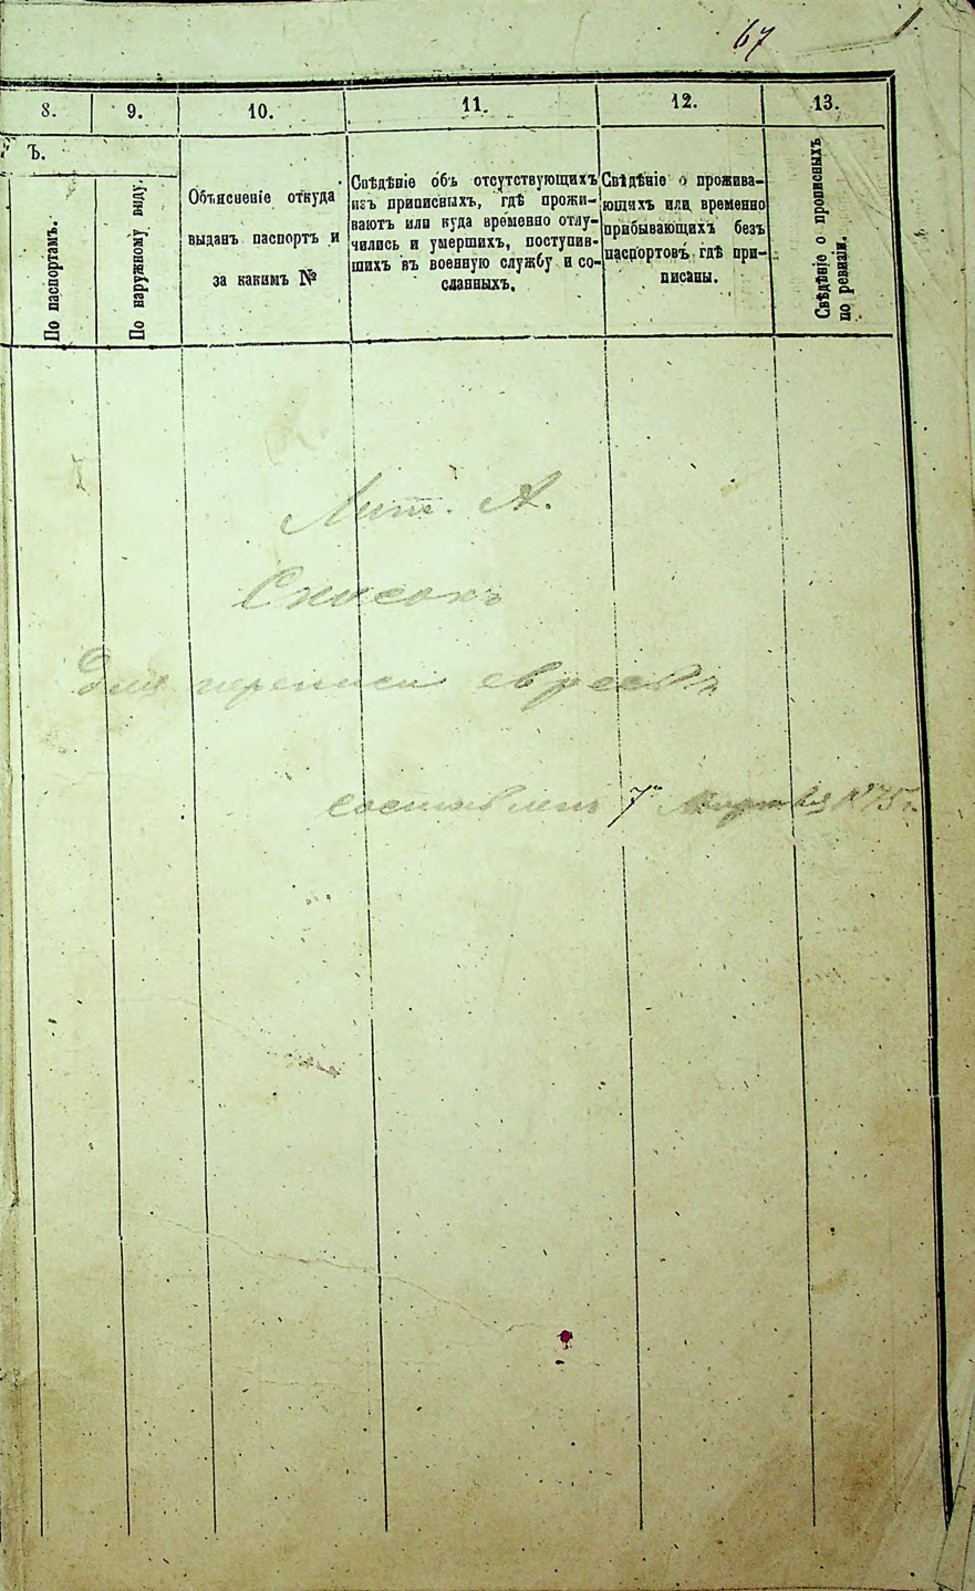 67
8.
9.
10.
11.
12.
13.
Ъ.
По паспортамъ.
По наружному виду.
Объясненіе откуда
выданъ паспортъ и
за какимъ №
Свѣдѣніе объ отсутствующихъ
изъ приписныхъ, гдѣ прожи-
ваютъ или куда временно отлу-
чились и умершихъ, поступив-
шихъ въ военную службу и со-
сланныхъ.
Свѣдѣніе о прожива-
ющихъ или временно
прибывающихъ безъ
паспортовъ гдѣ при-
писаны.
Свѣдѣніе о прописныхъ
по ревизіи.
Лит. А.
Списокъ
для переписи евреевъ
составленъ 7го Марта 1875 г.